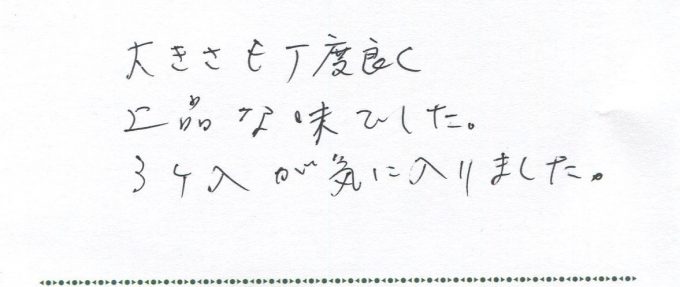 大きさも丁度良く
上品な味でした。
3ケ入が気に入りました。